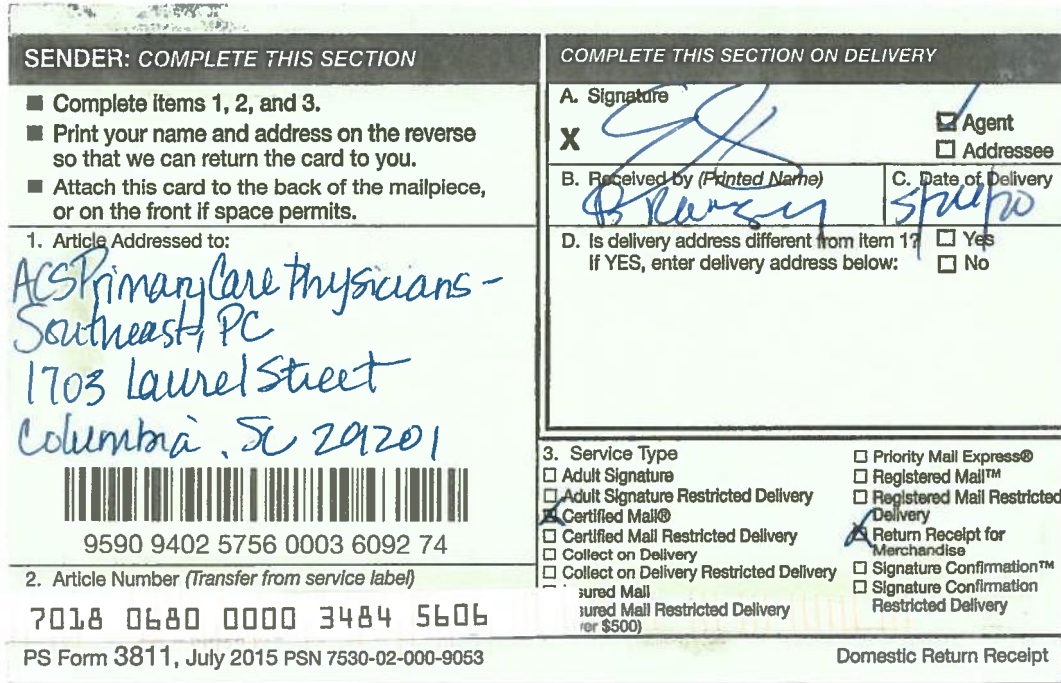 SENDER: COMPLETE THIS SECTION
■ Complete items 1, 2, and 3.
■ Print your name and address on the reverse
so that we can return the card to you.
■ Attach this card to the back of the mailpiece,
or on the front if space permits.
1. Article Addressed to:
ACS Primary Care Physicians -
Southeast, PC
1703 Laurel Street
Columbia, SC 29201
9590 9402 5756 0003 6092 74
2. Article Number (Transfer from service label)
7018 0680 0000 3484 5606
COMPLETE THIS SECTION ON DELIVERY
A. Signature
X
Agent
Addressee
B. Received by (Printed Name)
C. Date of Delivery
D. Is delivery address different from item 1?
Yes
If YES, enter delivery address below:
No
3. Service Type
Adult Signature
Adult Signature Restricted Delivery
Certified Mail®
Certified Mail Restricted Delivery
Collect on Delivery
Collect on Delivery Restricted Delivery
sured Mail
sured Mail Restricted Delivery
er $500)
Priority Mail Express®
Registered Mail™
Registered Mail Restricted
Delivery
Return Receipt for
Merchandise
Signature Confirmation™
Signature Confirmation
Restricted Delivery
PS Form 3811, July 2015 PSN 7530-02-000-9053
Domestic Return Receipt